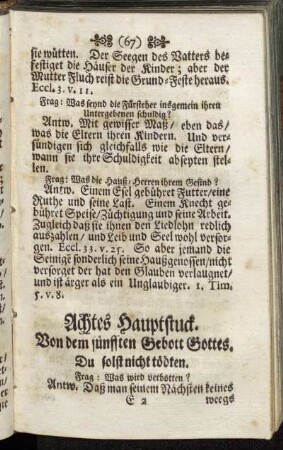 (67)
sie wütten. Der Seegen des Vatters be-
festiget die Häuser der Kinder; aber der
Mutter Fluch reist die Grund-Feste heraus.
Eccl. 3. v. 11.
Frag: Was seynd die Fürsteher insgemein ihren
Untergebenen schuldig?
Antw. Mit gewisser Maß/ eben das/
was die Eltern ihren Kindern. Und ver-
sündigen sich gleichfalls wie die Eltern/
wann sie ihre Schuldigkeit abseyten stel-
len.
Frag: Was die Hauß-Herren ihrem Gesind?
Antw. Einem Esel gebühret Futter/ eine
Ruthe und seine Last. Einem Knecht ge-
bühret Speise/ Züchtigung und seine Arbeit.
Zugleich daß sie ihnen den Liedlohn redlich
auszahlen/ und Leib und Seel wohl versor-
gen. Eccl. 33. v. 25. So aber jemand die
Seinige sonderlich seine Haußgenossen/ nicht
versorget der hat den Glauben verlaugnet/
und ist ärger als ein Unglaubiger. 1. Tim.
5. v. 8.
Achtes Hauptstuck.
Von dem fünfften Gebott Gottes.
Du solst nicht tödten.
Frag: Was wird verbotten?
Antw. Daß man seinem Nächsten keines
E 2 weegs